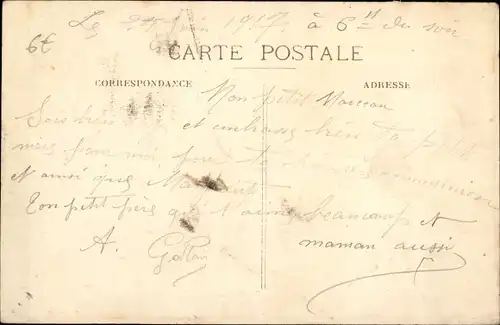 Le 25 Juin 1917 à 6 H du soir
CARTE POSTALE
CORRESPONDANCE
ADRESSE
Mon petit Marceau
Sois bien et embrasse bien ta petite
mère pour moi, pour ta
et ainsi que
Ton petit père qui t'aime beaucoup et
maman aussi
A.